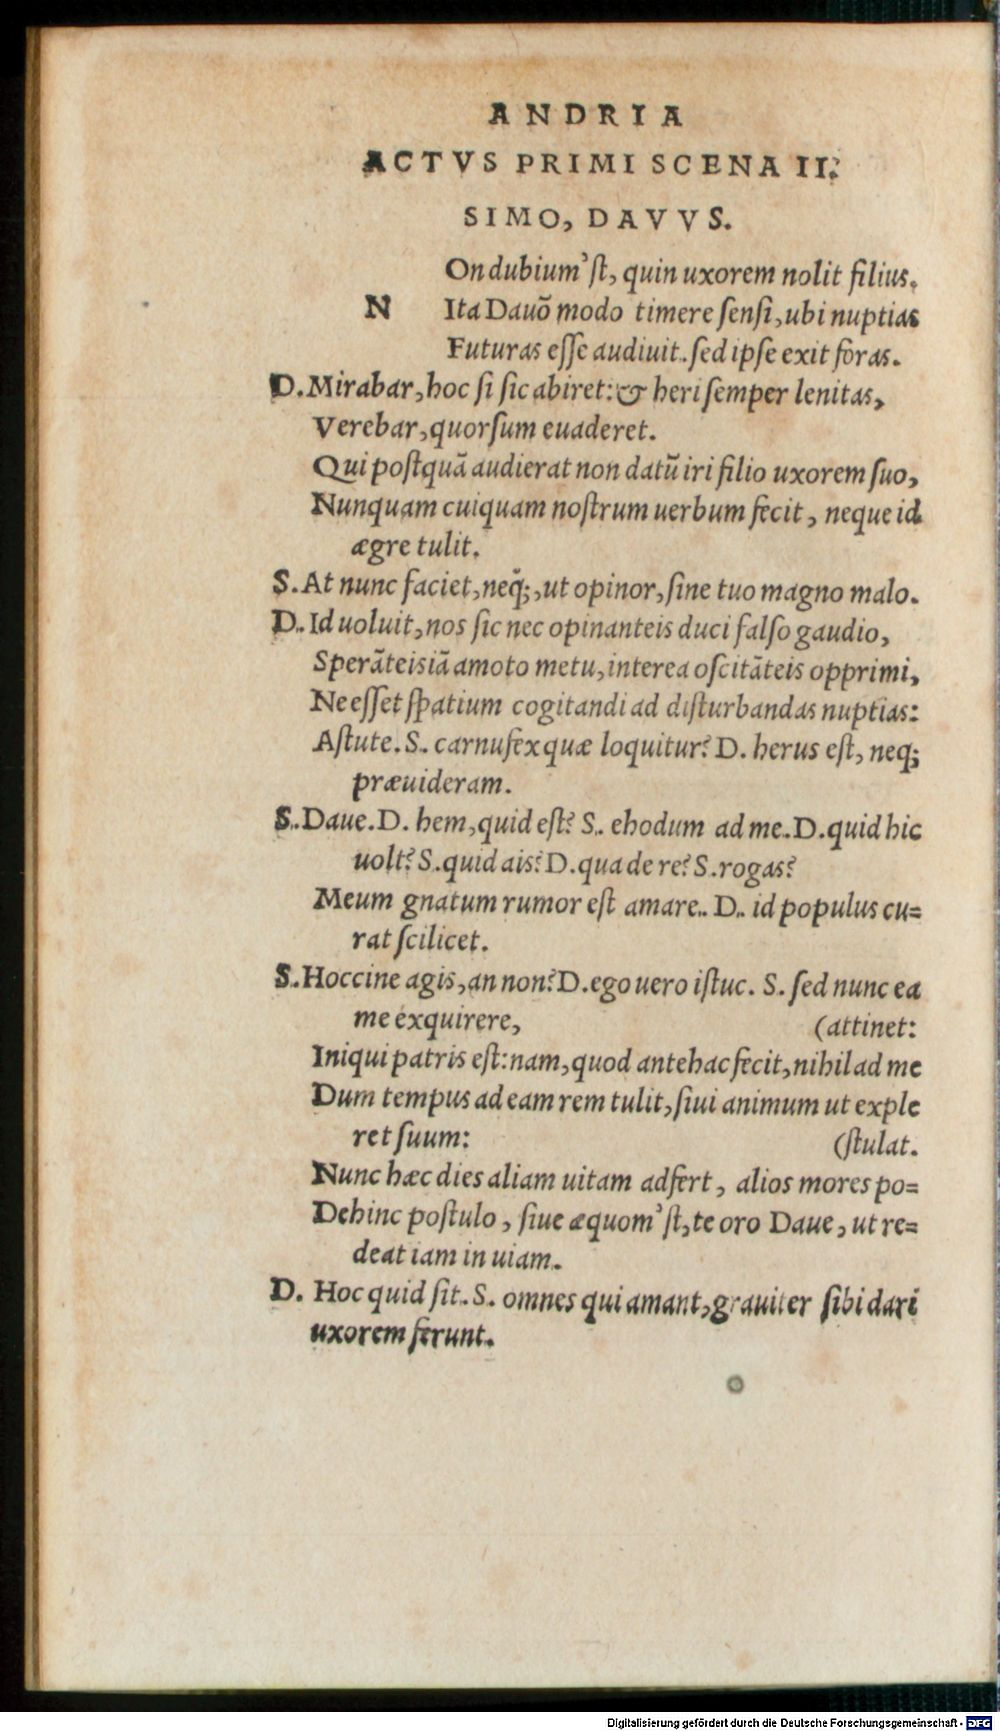 ANDRIA
ACTVS PRIMI SCENA II.
SIMO, DAVVS.
On dubium'ſt, quin uxorem nolit filius.
N Ita Dauõ modo timere ſenſi, ubi nuptias
Futuras eſſe audiuit. ſed ipſe exit foras.
D. Mirabar, hoc ſi ſic abiret: & heri ſemper lenitas,
Verebar, quorſum euaderet.
Qui poſtquã audierat non datũ iri filio uxorem ſuo,
Nunquam cuiquam noſtrum uerbum fecit, neque id
ægre tulit.
S. At nunc faciet, neq;, ut opinor, ſine tuo magno malo.
D. Id uoluit, nos ſic nec opinanteis duci falſo gaudio,
Sperãteis iã amoto metu, interea oſcitãteis opprimi,
Ne eſſet ſpatium cogitandi ad diſturbandas nuptias:
Aſtute. S. carnufex quæ loquitur? D. herus eſt, neq;
præuideram.
S. Daue. D. hem, quid eſt? S. ehodum ad me. D. quid hic
uolt? S. quid ais? D. qua de re? S. rogas?
Meum gnatum rumor eſt amare. D. id populus cu=
rat ſcilicet.
S. Hoccine agis, an non? D. ego uero iſtuc. S. ſed nunc ea
me exquirere, (attinet:
Iniqui patris eſt: nam, quod antehac fecit, nihil ad me
Dum tempus ad eam rem tulit, ſiui animum ut exple
ret ſuum: (ſtulat.
Nunc hæc dies aliam uitam adfert, alios mores po=
Dehinc poſtulo, ſiue æquom'ſt, te oro Daue, ut re=
deat iam in uiam.
D. Hoc quid ſit. S. omnes qui amant, grauiter ſibi dari
uxorem ferunt.
Digitalisierung gefördert durch die Deutsche Forschungsgemeinschaft - DFG